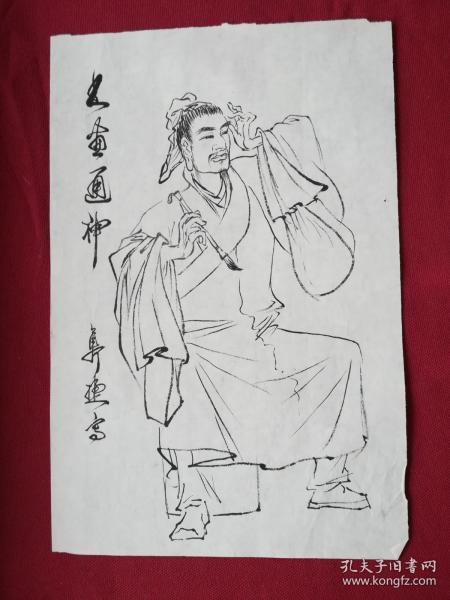 书画通神
写
孔夫子旧书网
www.kongfz.com